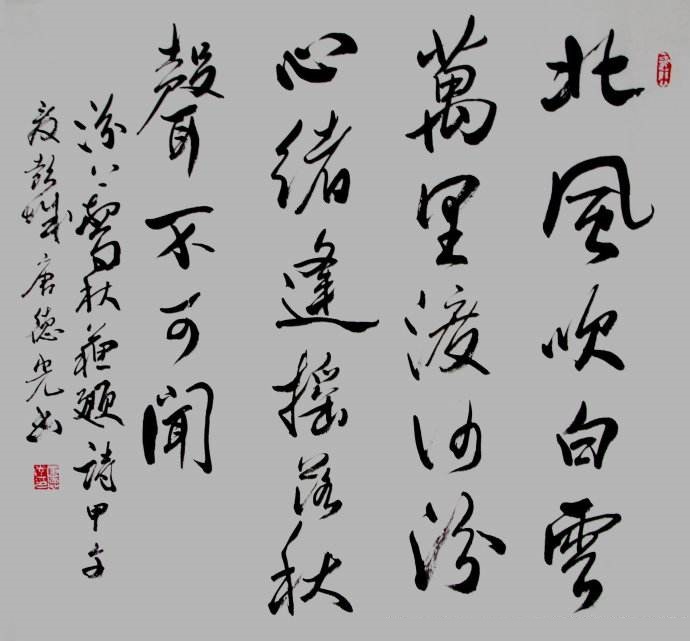 北風吹白雲
萬里渡河汾
心緒逢搖落秋
聲不可聞
汾上驚秋蘇頲詩甲午
夏彭城唐德光书